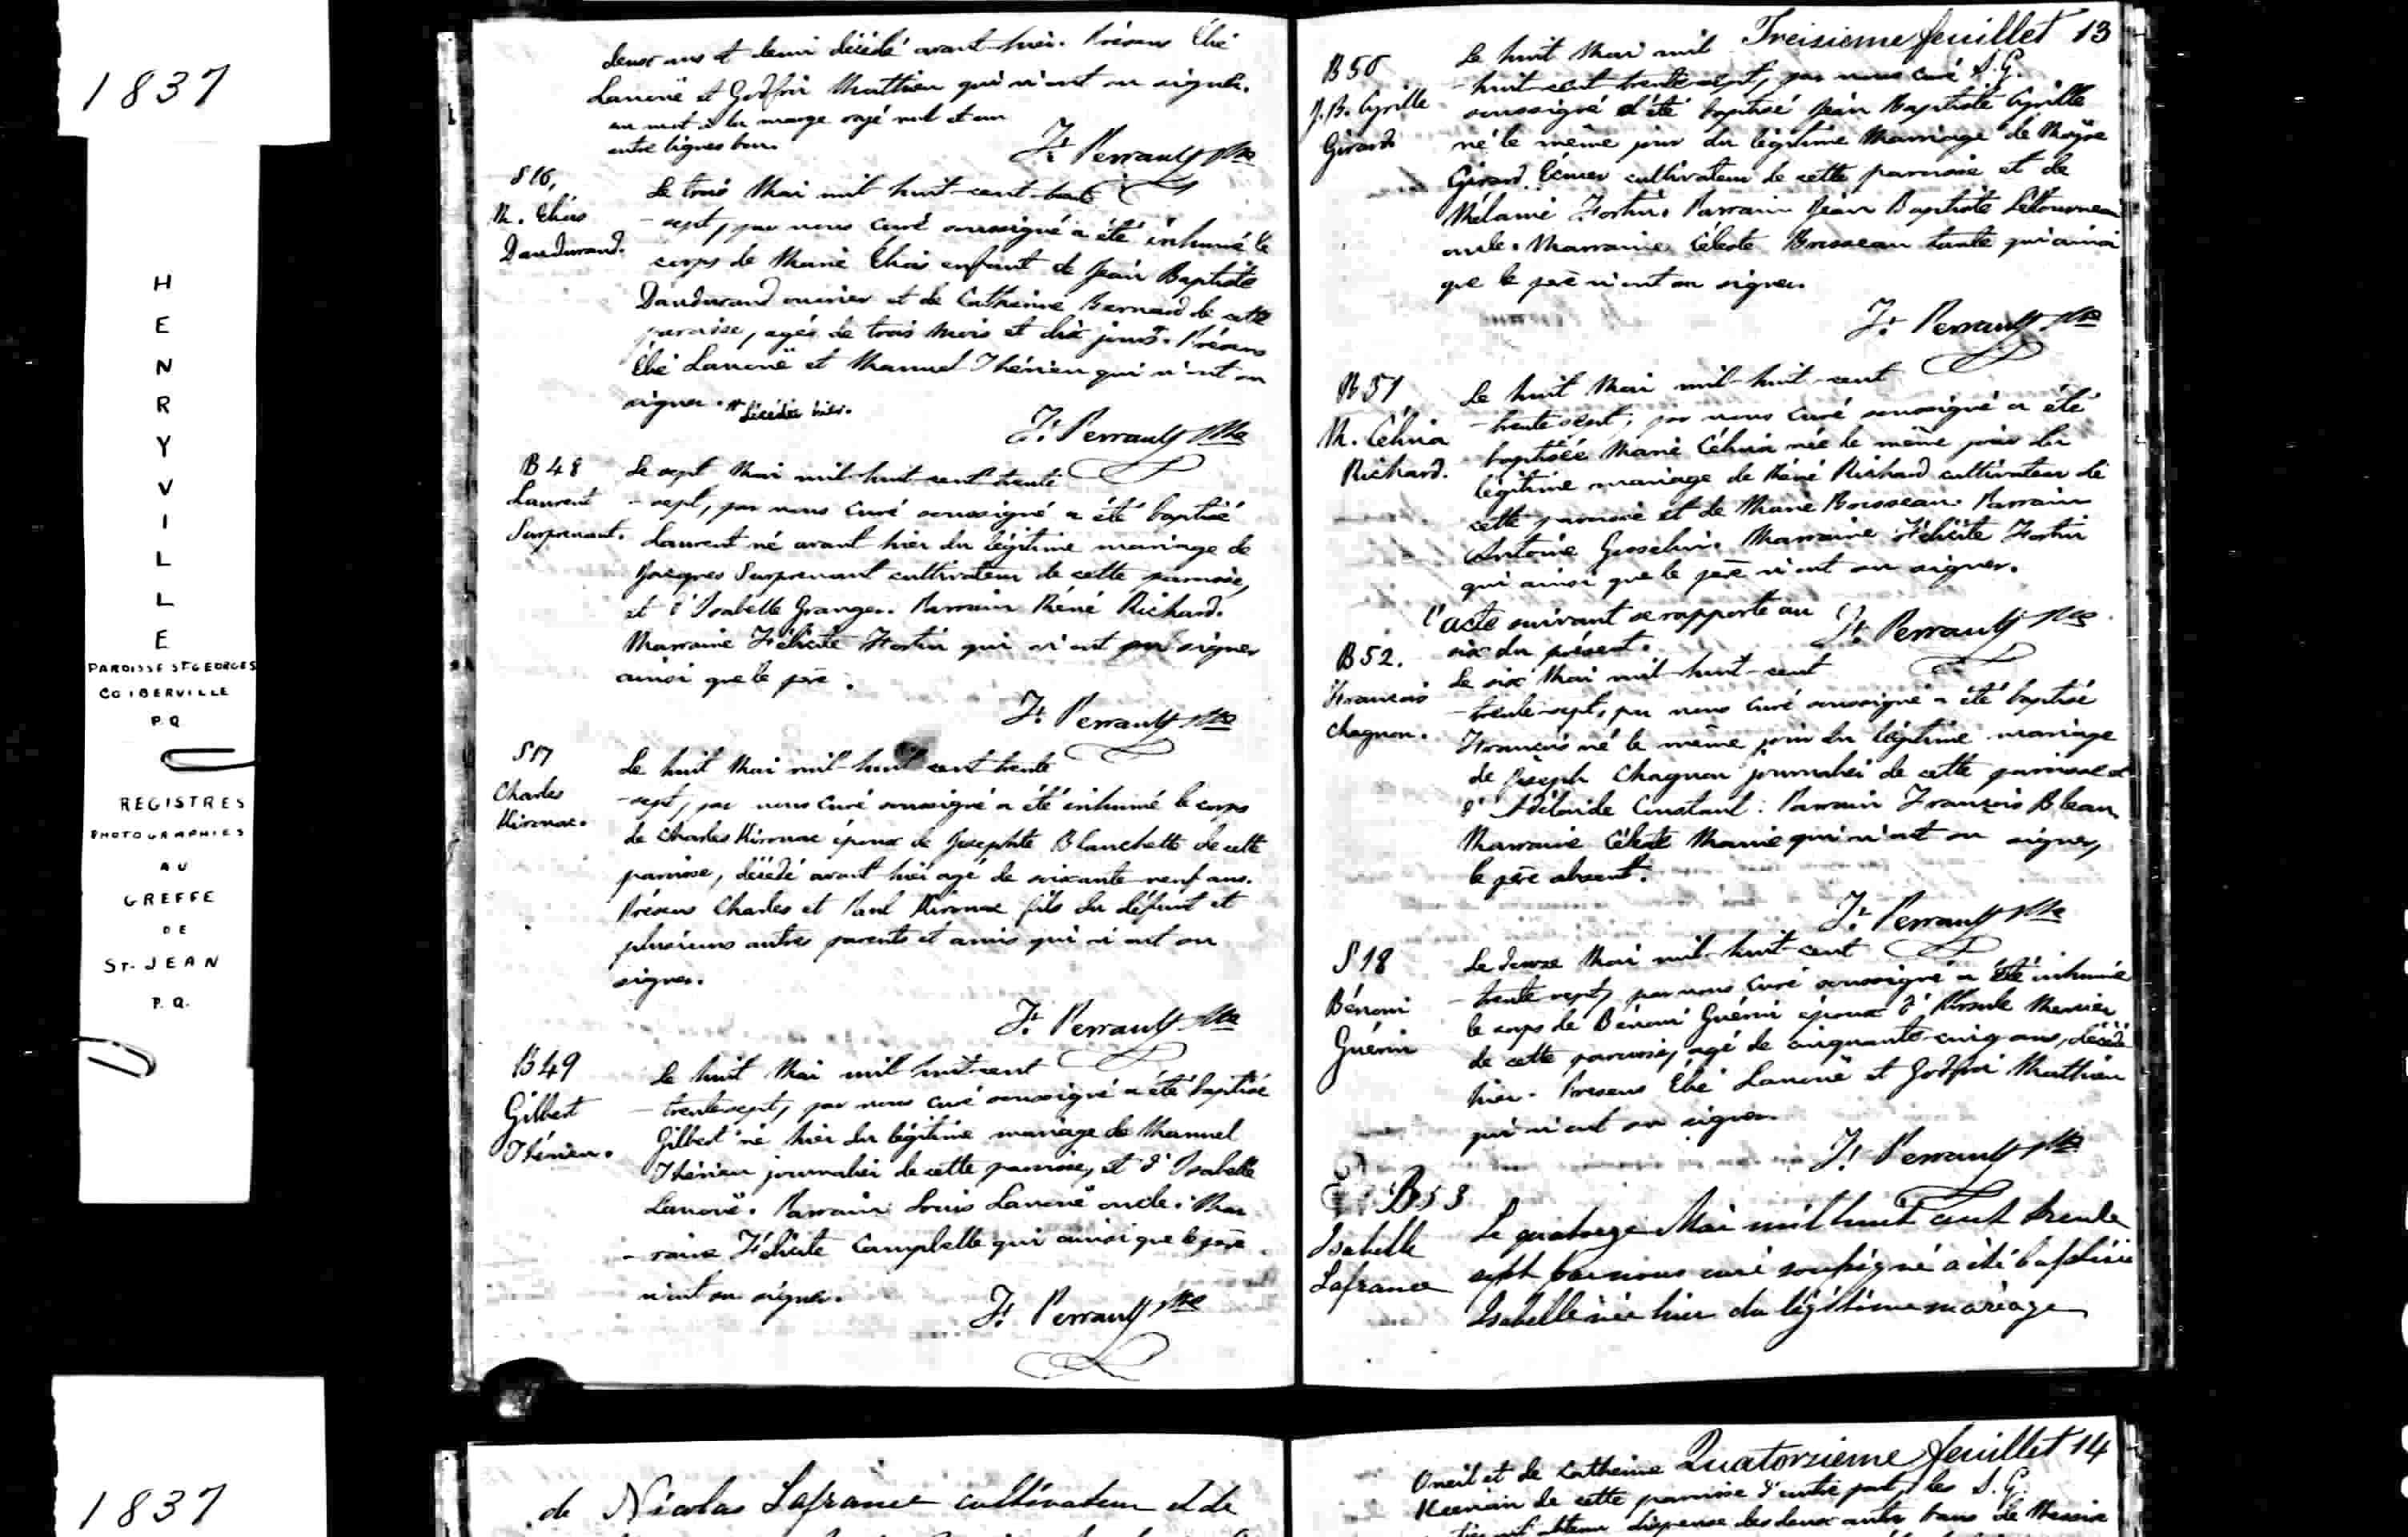 1837
HENRYVILLE
PAROISSE ST GEORGES
CO IBERVILLE
P.Q
REGISTRES
PHOTOGRAPHIES
AU
GREFFE
DE
ST. JEAN
P.Q.
1837
deux ans et demi décédé avant-hier. Présens Élie
Lanoue et Godfroi Matthieu qui n'ont su signer.
un mot à la marge rayé nul et un
entre lignes bon.
Ft. Perrault Ptre
S 16,
M. Elisa
Dandurand.
Le trois Mai mil huit-cent-trente
-sept, par nous Curé soussigné a été inhumé le
corps de Marie Elisa enfant de Jean Baptiste
Dandurand ouvrier et de Catherine Bernard de cette
paroisse, agée de trois mois et dix jours. Présens
Élie Lanouë et Manuel Thérien qui n'ont su
signer. * décédée hier.
Ft. Perrault Ptre
B 48
Laurent
Surprenant.
Le sept Mai mil-huit-cent trente
-sept, par nous Curé soussigné a été baptisé
Laurent né avant hier du légitime mariage de
Jacques Surprenant cultivateur de cette paroisse,
et d'Isabelle Granger. Parrain Réné Richard.
Marraine Félicité Fortin qui n'ont su signer
ainsi que le père.
Ft. Perrault Ptre
S 17
Charles
Kirouac.
Le huit Mai mil-huit cent trente
-sept, par nous Curé soussigné a été inhumé le corps
de Charles Kirouac époux de Josephte Blanchette de cette
paroisse, décédé avant hier agé de soixante-neuf ans.
Présens Charles et Paul Kirouac fils du défunt et
plusieurs autres parents et amis qui n'ont su
signer.
Ft. Perrault Ptre
B 49
Gilbert
Thérien.
Le huit Mai mil huit-cent
-trente-sept, par nous curé soussigné a été baptisé
Gilbert né hier du légitime mariage de Manuel
Thérien journalier de cette paroisse, et d'Isabelle
Lanouë. Parrain Louis Lanouë oncle. Mar
-raine Félicité Campbelle qui ainsi que le père
n'ont su signer.
Ft. Perrault Ptre
Treisieme feuillet 13
S.G.
B 50
J.B. Cyrille
Girard
Le huit Mai mil
-huit-cent trente-sept, par nous curé
soussigné a été baptisé Jean Baptiste Cyrille
né le même jour du légitime Mariage de Moyse
Girard Écuier cultivateur de cette paroisse et de
Mélanie Fortin. Parrain Jean Baptiste Létourneau
oncle. Marraine Céleste Boisseau tante qui ainsi
que le père n'ont su signer.
Ft. Perrault Ptre
B 51
M. Célina
Richard.
Le huit Mai mil-huit-cent
-trente sept, par nous Curé soussigné a été
baptisée Marie Célina née le même jour du
légitime mariage de Réné Richard cultivateur de
cette paroisse et de Marie Boisseau. Parrain
Antoine Gosselin. Marraine Félicité Fortin
qui ainsi que le père n'ont su signer.
l'acte suivant se rapporte au
six du présent.
Ft. Perrault Ptre
B 52.
Francois
Chagnon.
Le six Mai mil-huit-cent
-trente-sept, par nous Curé soussigné a été baptisé
François né le même jour du légitime mariage
de Joseph Chagnon journalier de cette paroisse et
d'Adélaide Constant. Parrain François Blean
Marraine Céleste Marie qui n'ont su signer,
le père absent.
Ft. Perrault Ptre
S 18
Bénoni
Guérin
Le douze Mai mil-huit-cent
-trente sept, par nous Curé soussigné a été inhumé
le corps de Bénoni Guérin époux d'Ursule Mercier
de cette paroisse, agé de cinquante-cinq ans, décédé
hier. Présens Élie Lanouë et Godfroi Matthieu
qui n'ont su signer.
Ft. Perrault Ptre
B 53
Isabelle
Lafrance
Le quatorze Mai mil huit cent trente
sept par nous curé soussigné a été baptisée
Isabelle née hier du légitime mariage
de Nicolas Lafrance cultivateur et de
Quatorzieme feuillet 14
S.G.
Oneil et de Catherine
de cette paroisse d'autre part, les
obtenu dispense des deux autres bans de Messire